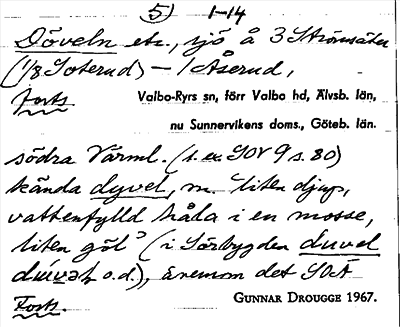 5) 1-14
Döveln etc., sjö å 3 Strömsäter
(1/8 Soterud) – 1 Åserud,
Forts
Valbo-Ryrs sn, förr Valbo hd, Älvsb. län,
nu Sunnervikens doms., Göteb. län.
södra Värml. (t. ex. SOV 9 s. 80)
kända dyvel, m. "liten djup,
vattenfylld håla i en mosse,
liten göl" (i Sörbygden duvel
o.d.), även om det SOÄ
Forts.
GUNNAR DROUGGE 1967.